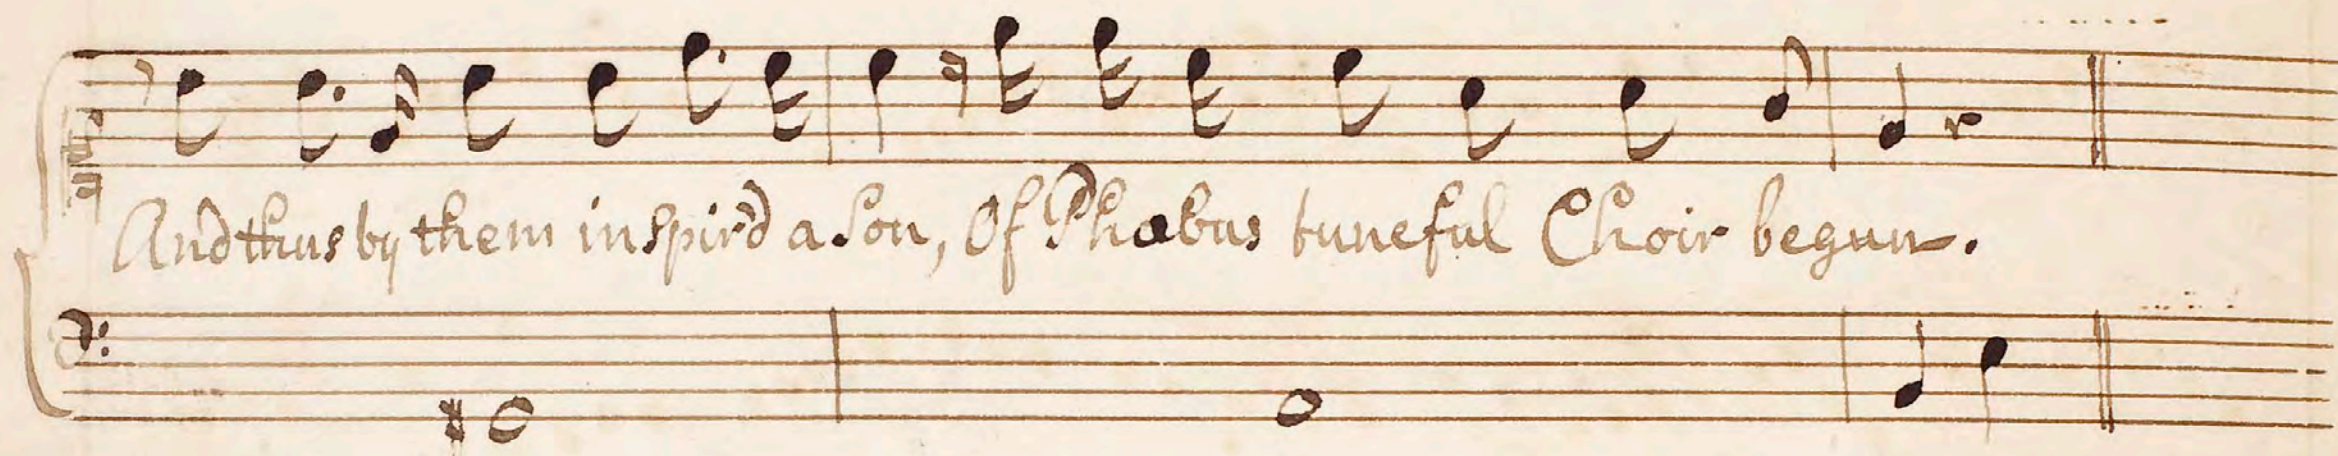 And thus by them inspir'd a son, Of Phœbus tuneful Choir begun.